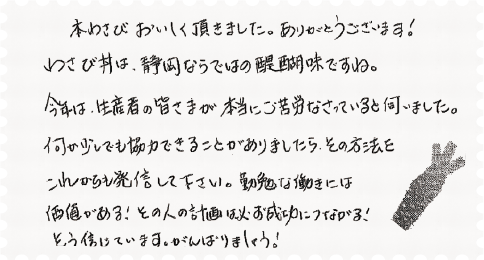 本わさび おいしく頂きました。ありがとうございます!
わさび丼は、静岡ならではの醍醐味ですね。
今年は、生産者の皆さまが本当にご苦労なさっていると伺いました。
何か少しでも協力できることがありましたら、その方法を
これからも発信して下さい。勤勉な働きには
価値がある! その人の計画は必ず成功につながる!
そう信じています。がんばりましょう!